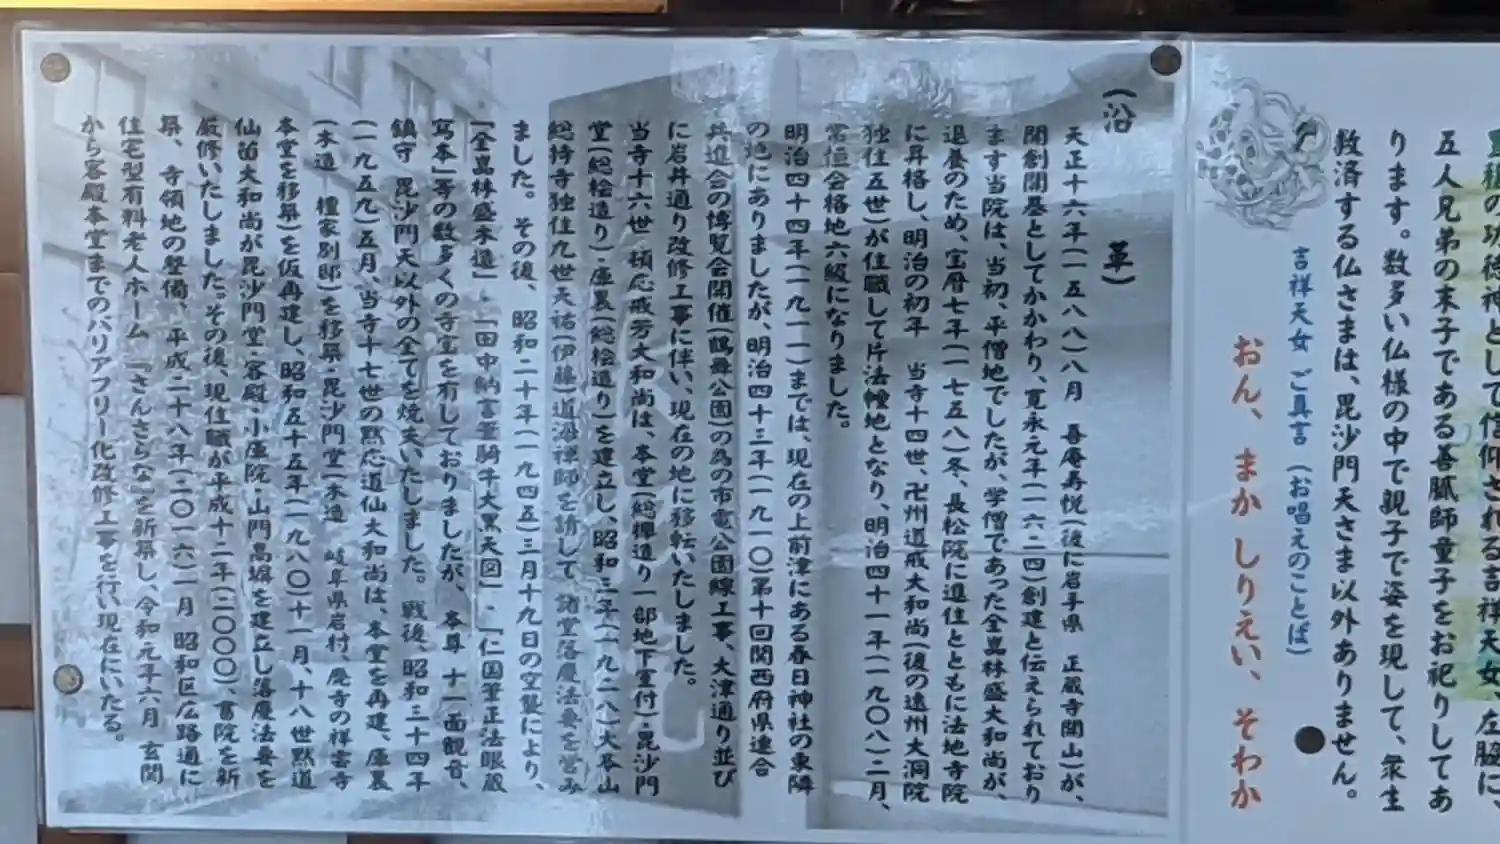 徳の功徳神として信仰される吉祥天女、左脇に、
五人兄弟の末子である善膩師童子をお祀りしてあ
ります。数多い仏様の中で親子で姿を現して、衆生
救済する仏さまは、毘沙門天さま以外ありません。
吉祥天女 ご真言 (お唱えのことば)
おん、まか しりえい、そわか
(沿 革)
天正十六年(一五八八)八月 喜庵寿悦(後に岩手県 正蔵寺開山)が、
開創開基としてかかわり、寛永元年(一六二四)創建と伝えられており
ます当院は、当初、平僧地でしたが、学僧であった全嵓林盛大和尚が、
退養のため、宝暦七年(一七五八)冬、長松院に進住とともに法地寺院
に昇格し、明治の初年 当寺十四世、卍州道戒大和尚(後の遠州大洞院
独住五世)が住職して片法幢地となり、明治四十一年(一九〇八)二月、
常恒会格地六級になりました。
明治四十四年(一九一一)までは、現在の上前津にある春日神社の東隣
の地にありましたが、明治四十三年(一九一〇)第十回関西府県連合
共進会の博覧会開催(鶴舞公園)の為の市電公園線工事、大津通り並び
に岩井通り改修工事に伴い、現在の地に移転いたしました。
当寺十六世 碩応戒芳大和尚は、本堂(総欅造り一部地下室付)・毘沙門
堂(総桧造り)・庫裏(総桧造り)を建立し、昭和三年(一九二八)大本山
総持寺独住九世天祐(伊藤)道海禅師を請して、諸堂落慶法要を営み
ました。その後、昭和二十年(一九四五)三月十九日の空襲により、
「全嵓林盛木造」・「田中納言筆騎牛大黒天図」・「仁国筆正法眼蔵
写本」等の数多くの寺宝を有しておりましたが、本尊 十一面観音、
鎮守 毘沙門天以外の全てを焼失いたしました。戦後、昭和三十四年
(一九五九)五月、当寺十七世の黙応道仙大和尚は、本堂を再建、庫裏
(木造 檀家別邸)を移築・毘沙門堂(木造 岐阜県岩村 廃寺の祥雲寺
本堂を移築)を仮再建し、昭和五十五年(一九八〇)十一月、十八世黙道
仙苗大和尚が毘沙門堂・客殿・小庫院・山門高塀を建立し落慶法要を
厳修いたしました。その後、現住職が平成十二年(二〇〇〇)、書院を新
築、寺領地の整備、平成二十八年(二〇一六)一月 昭和区広路通に
住宅型有料老人ホーム『さんさらな』を新築し、令和元年六月 玄関
から客殿本堂までのバリアフリー化改修工事を行い現在にいたる。